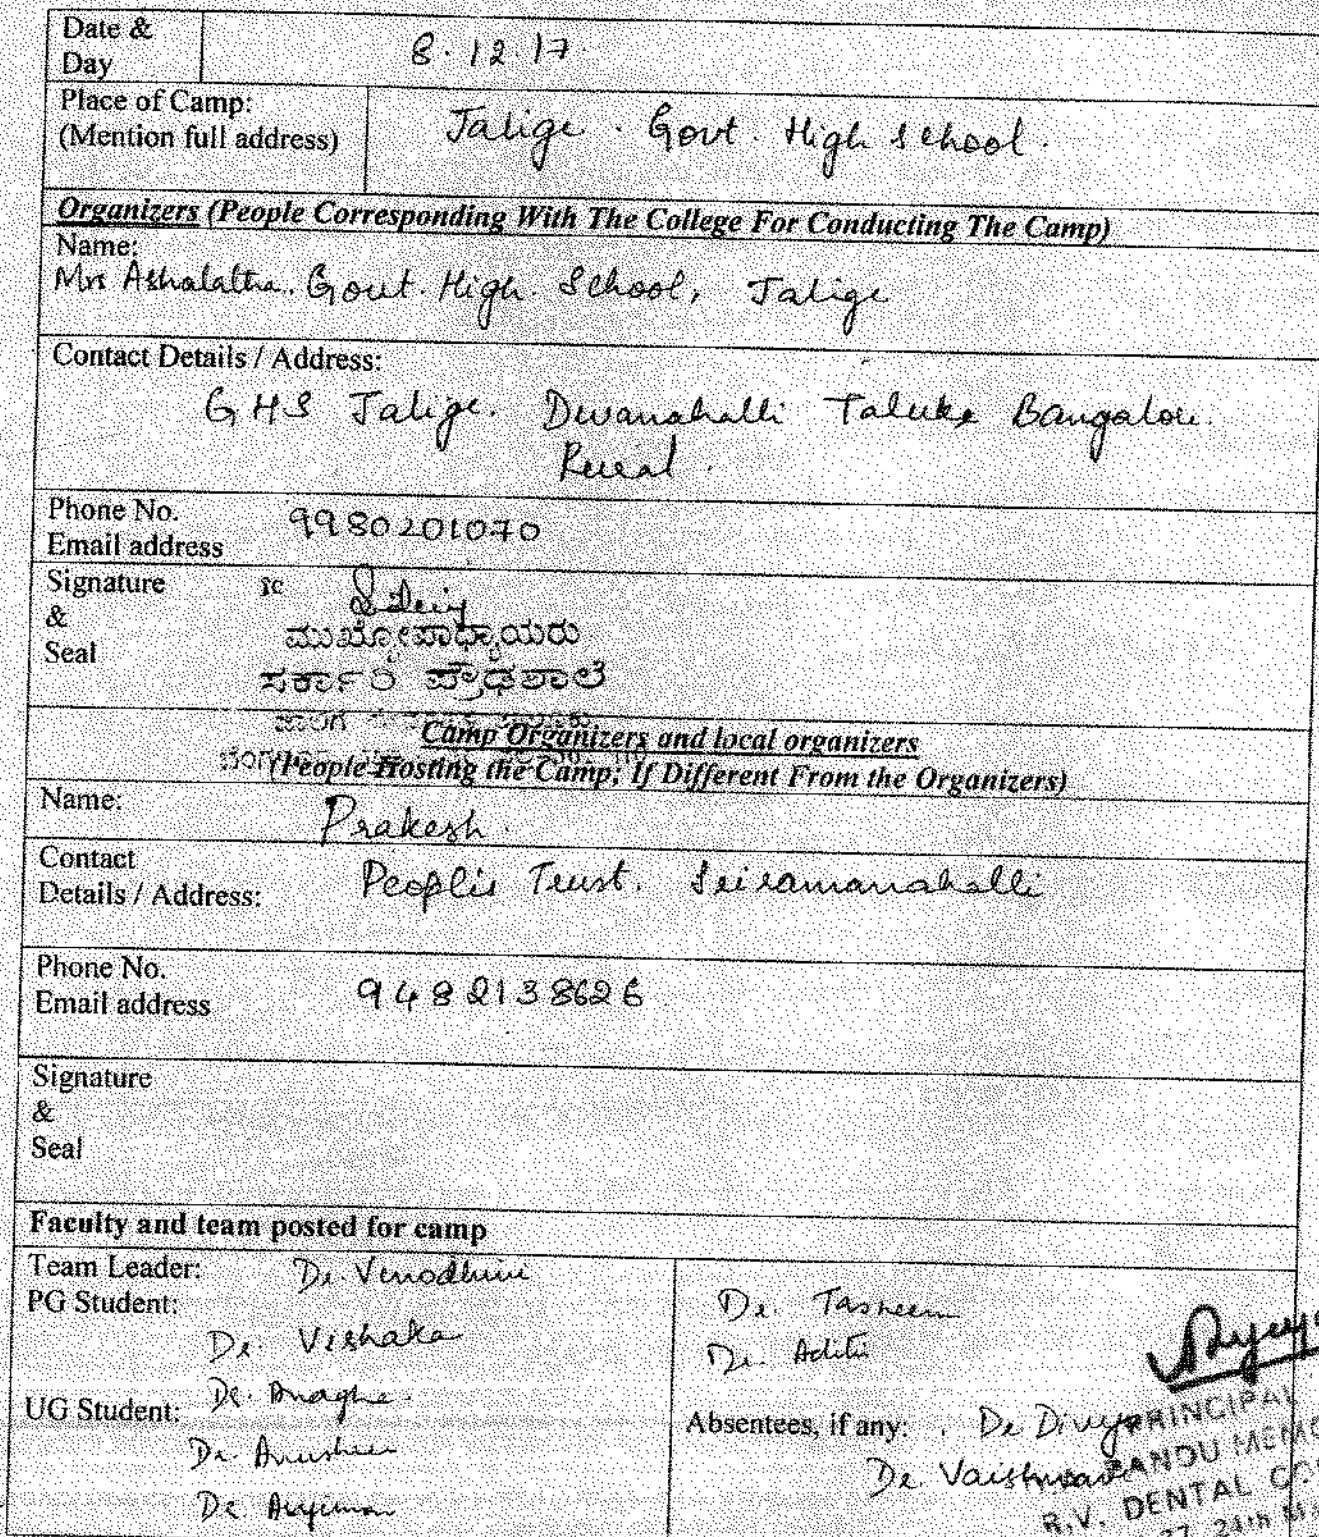 Date &
Day
8.12.17
Place of Camp:
(Mention full address)
Jalige. Govt. High School.
Organizers (People Corresponding With The College For Conducting The Camp)
Name:
Mrs Ashalatha. Govt. High. School, Jalige
Contact Details / Address:
GHS Jalige. Dvanahalli Taluke Bangalore.
Rural.
Phone No.
Email address
9980201070
Signature
&
Seal
ಮುಖ್ಯೋಪಾಧ್ಯಾಯರು
ಸರ್ಕಾರಿ ಪ್ರೌಢಶಾಲೆ
Camp Organizers and local organizers
(People Hosting the Camp; If Different From the Organizers)
Name:
Prakesh.
Contact
Details / Address:
Peoples Trust. Sriramanahalli
Phone No.
Email address
9482138626
Signature
&
Seal
Faculty and team posted for camp
Team Leader: Dr. Vinodhini
PG Student:
Dr. Vishaka
Dr. Anagha.
UG Student:
Dr.
Dr.
Dr. Tasneem
Dr. Aditi
Absentees, if any: Dr Divya
Dr Vaishnavi
PRINCIPAL
R.V. DENTAL